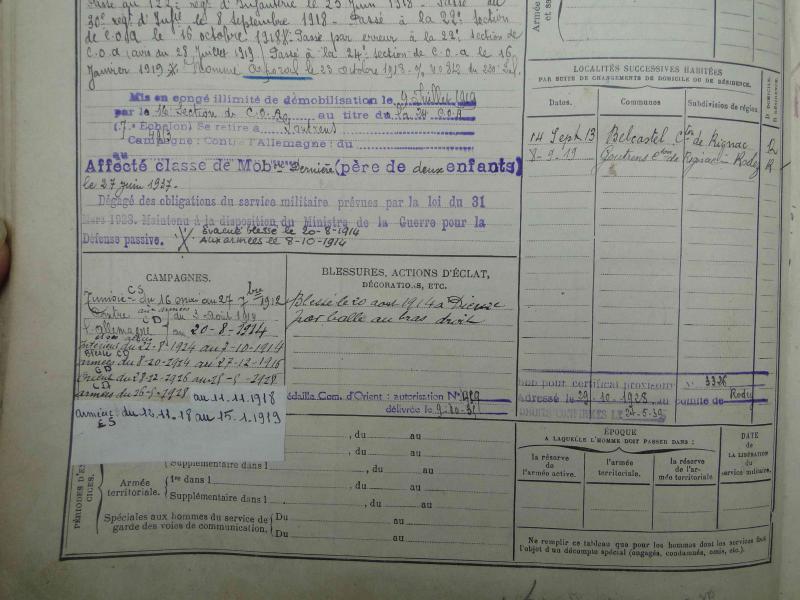 30e regt d'Infie le 8 septembre 1918 - Passé à la 22e section
de C.O.A le 16 octobre 1918. Passé par erreur à la 22e section de
C.O.A (avis du 28 juillet 1919) Passé à la 24e section de C.O.A le 16
Janvier 1919 Nommé caporal le 23 octobre 1918
Mis en congé illimité de démobilisation le 9 Juillet 1919
par la 16 Section de C.O.A. au titre du la 24 C.O.A
(7e Echelon) Se retire à
Campagne: Contre l'Allemagne: du
au
Affecté classe de Mob dernière (père de deux enfants)
le 27 juin 1927.
Dégagé des obligations du service militaire prévues par la loi du 31
Mars 1928. Maintenu à la disposition du Ministre de la Guerre pour la
Défense passive.
Evacué blessé le 20-8-1914
Aux armées le 8-10-1914
CAMPAGNES.
CS
Tunisie du 16 mai au 27 7bre 1912
Contre
aux armées
CD
du 2 août
l'Allemagne
au 20-8-1914
Intérieur du 21-8-1914 au 7-10-1914
Blessé CD
armées du 8-10-1914 au 27-12-1916
CD
Orient du 28-12-1916 au
CD
armées du au 11.11.1918
armées du 12.11.18 au 15.1.1919
ES
BLESSURES, ACTIONS D'ÉCLAT,
DÉCORATIONS, ETC.
Blessé le 20 août 1914 à Dieuze
par balle au bras droit
Médaille Com. d'Orient: autorisation N°
délivrée le
LOCALITÉS SUCCESSIVES HABITÉES
PAR SUITE DE CHANGEMENTS DE DOMICILE OU DE RÉSIDENCE.
Dates.
Communes
Subdivision de région
D. DOMICILE
R. RÉSIDENCE.
14 Sept 13 Belcastel Cton de Rignac
8-9-19 Goutrens Cton de Rignac Rodez R
Bon pour certificat provisoire N° 3336
Adressé le 29-10-1928 au comité de Rodez
DROITS CONFIRMÉS LE 24-5-39
PÉRIODES D'EXERCICES.
, du au
, du au
Supplémentaire dans l , du au
Armée
territoriale.
1re dans l , du au
Supplémentaire dans l , du au
Spéciales aux hommes du service de
garde des voies de communication.
Du au
Du au
ÉPOQUE
A LAQUELLE L'HOMME DOIT PASSER DANS :
la réserve
de
l'armée active.
l'armée
territoriale.
la réserve
de l'armée territoriale
DATE
de
LA LIBÉRATION
du
service militaire.
Ne remplir ce tableau que pour les hommes dont les services font
l'objet d'un décompte spécial (engagés, condamnés, omis, etc.).